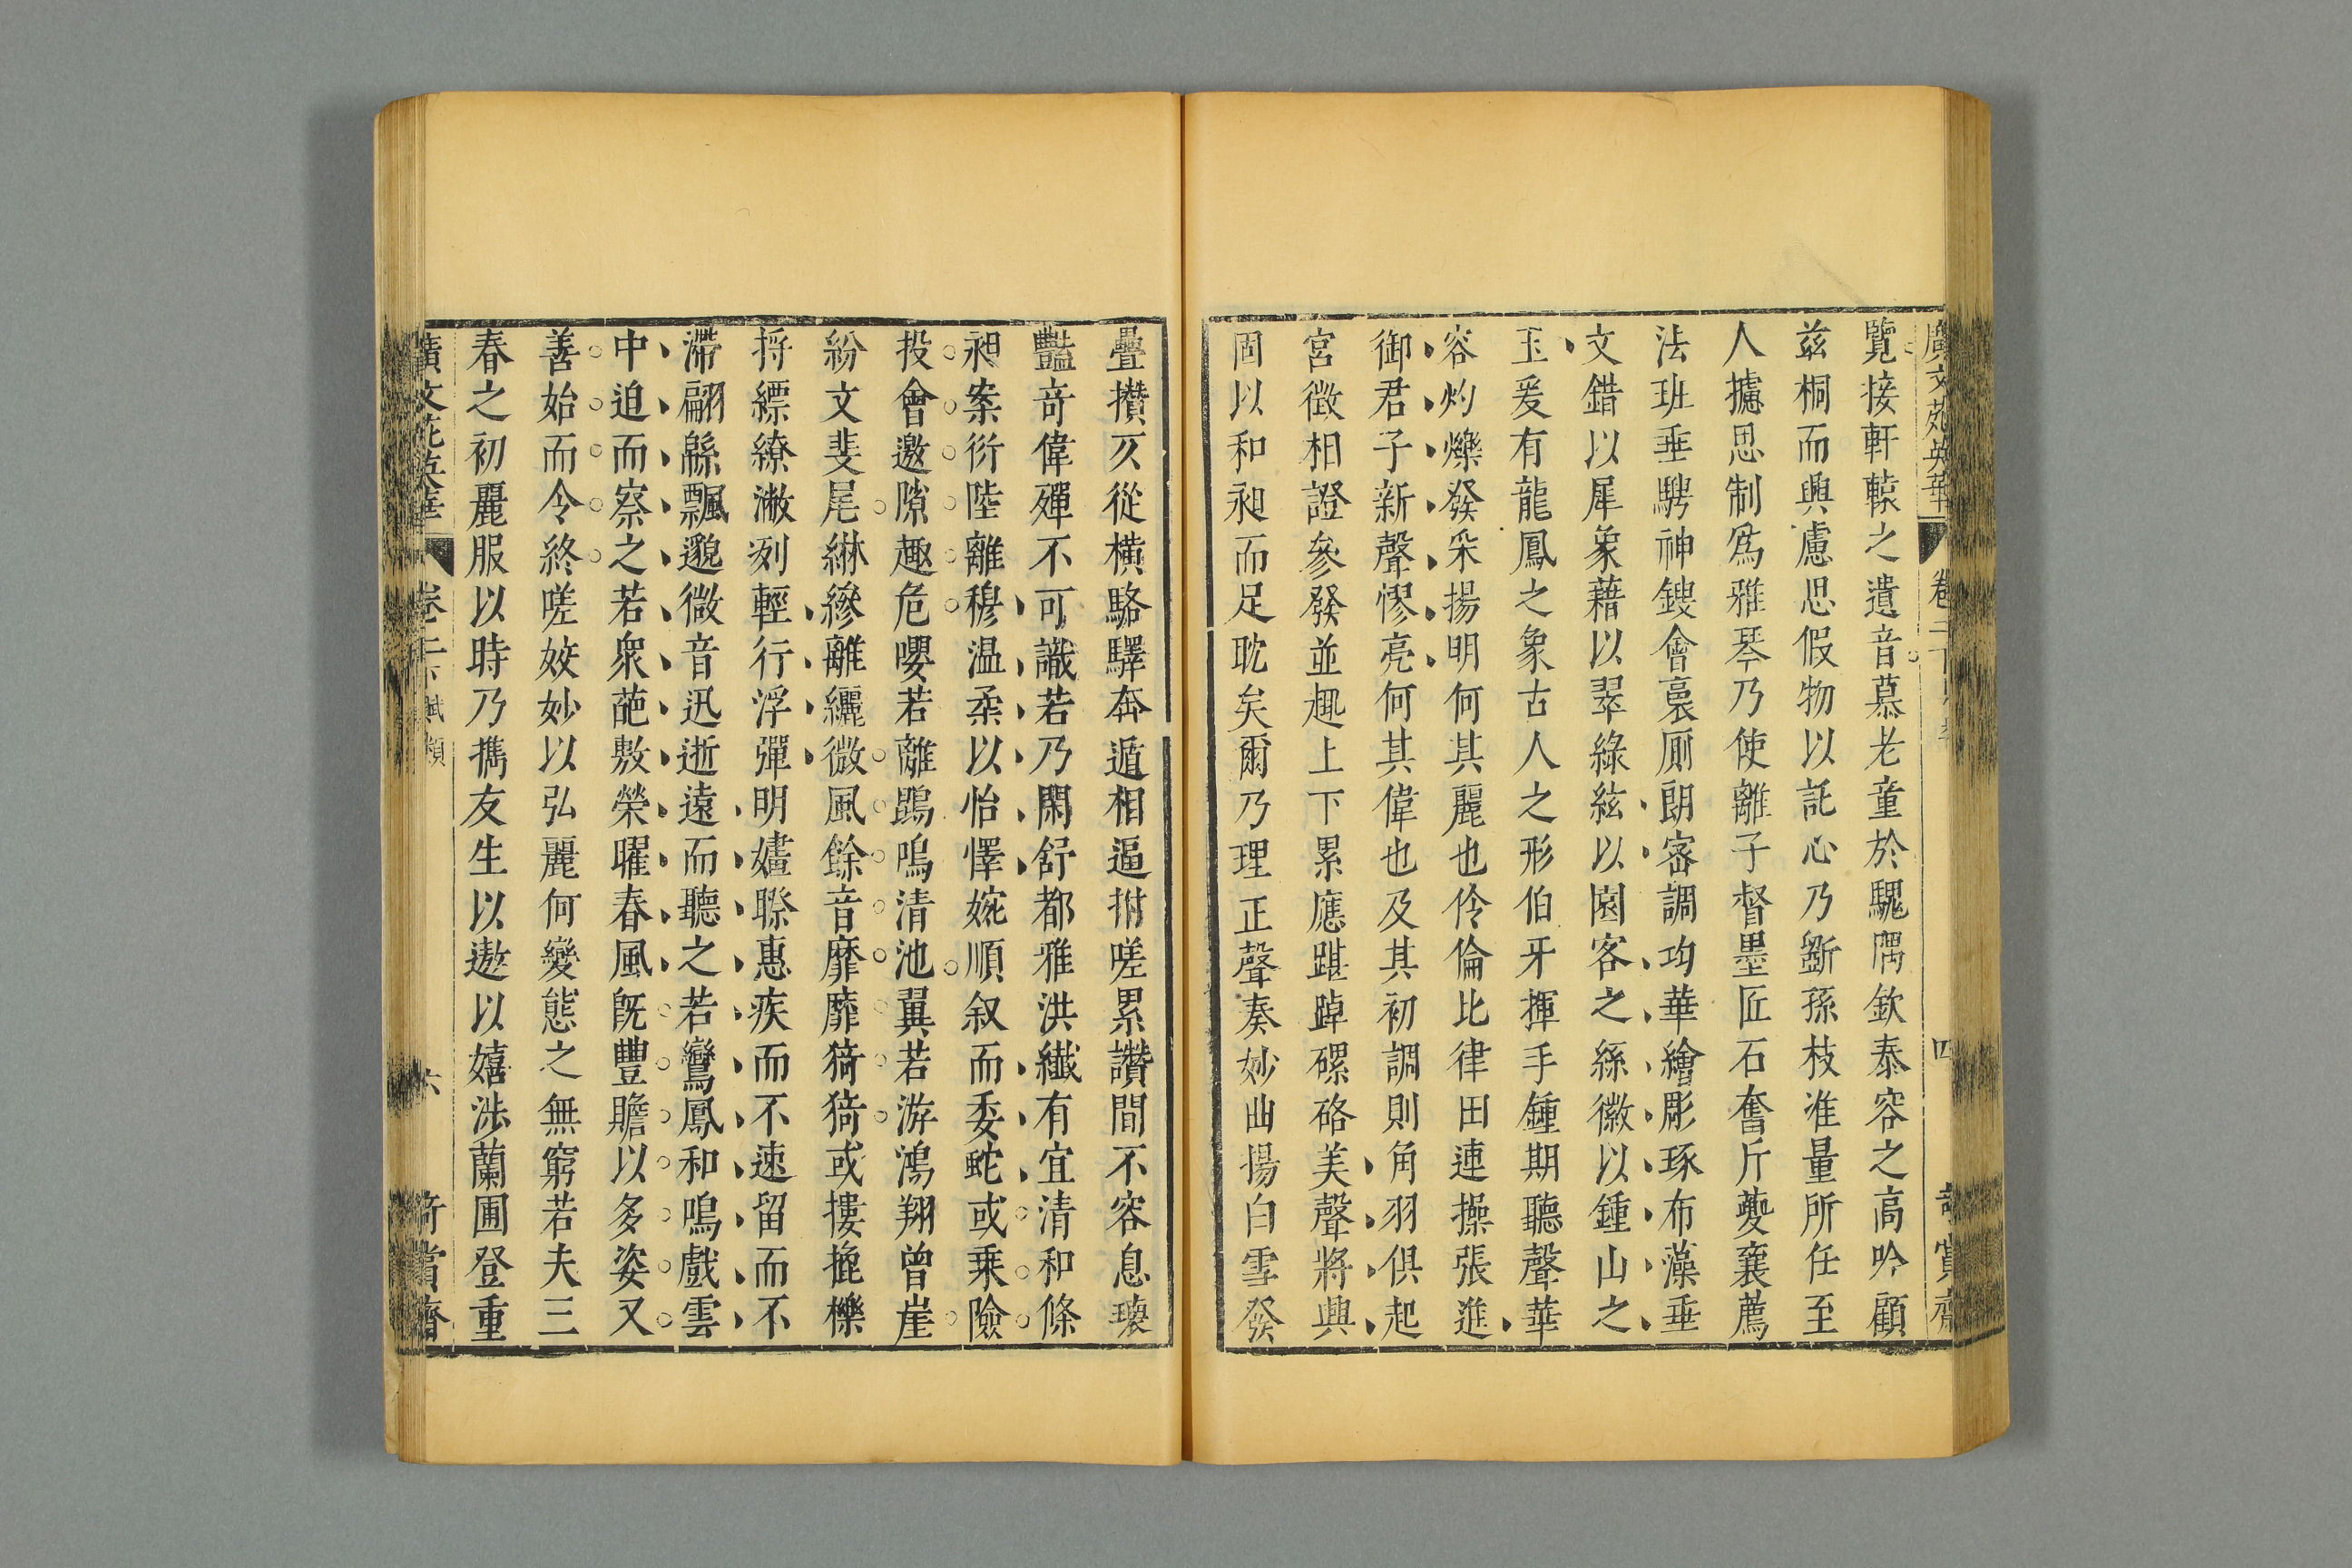 廣文苑英華 卷二下 四 奇賞齋
覽接軒轅之遺音慕老童於騩隅欽泰容之高吟顧
兹桐而興慮思假物以託心乃斵孫枝准量所任至
人攄思制爲雅琴乃使離子督墨匠石奮斤夔襄薦
法班垂騁神鎪會裛厠朗密調均華繪彫琢布藻垂
文錯以犀象藉以翠綠絃以園客之絲徽以鍾山之
玉爰有龍鳳之象古人之形伯牙揮手鍾期聽聲華
容灼爍發采揚明何其麗也伶倫比律田連操張進
御君子新聲憀亮何其偉也及其初調則角羽俱起
宮徵相證參發並趣上下累應踸踔磥硌美聲將興
固以和昶而足耽矣爾乃理正聲奏妙曲揚白雪發
疊攢仄從橫駱驛奔遁相逼拊嗟累讚間不容息瓌
豔奇偉殫不可識若乃閑舒都雅洪纖有宜清和條
昶案衍陸離穆温柔以怡懌婉順叙而委蛇或乘險
投會邀隙趨危嚶若離鵾鳴清池翼若游鴻翔曾崖
紛文斐尾綝縿離纚微風餘音靡靡猗猗或摟㩓櫟
捋縹繚潎洌輕行浮彈明嫿䁱惠疾而不速留而不
滯翩緜飄邈微音迅逝遠而聽之若鸞鳳和鳴戲雲
中迫而察之若衆葩敷榮曜春風旣豐贍以多姿又
善始而令終嗟姣妙以弘麗何變態之無窮若夫三
春之初麗服以時乃擕友生以遨以嬉涉蘭圃登重
廣文苑英華 卷二下 賦類 六 奇賞齋